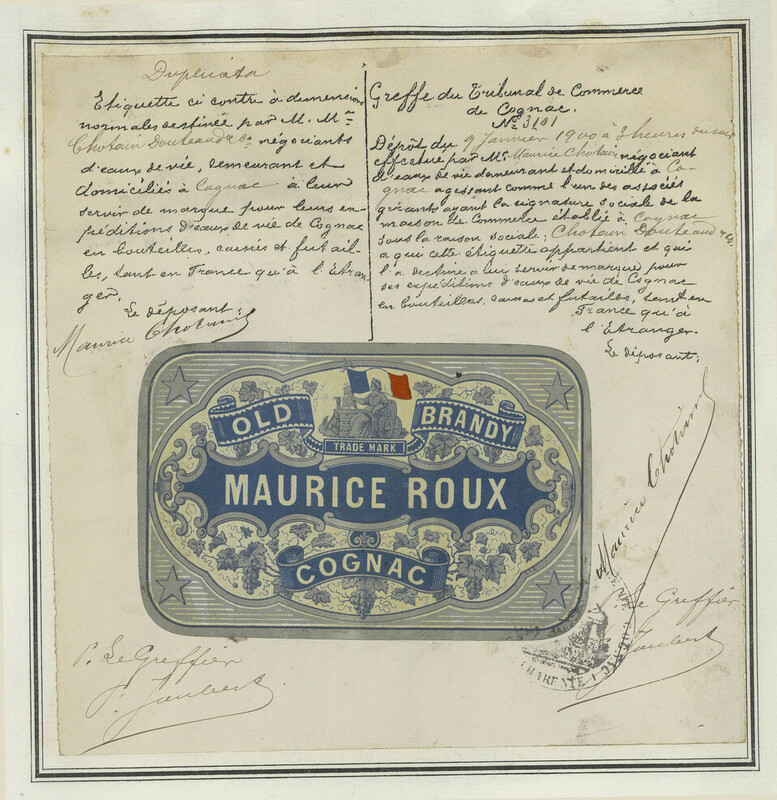 Duplicata
Etiquette ci contre à dimensions
normales destinée par M. M.rs
Chotain Douteaud & Co négociants
d'eaux de vie, demeurant et
domiciliés à Cognac à leur
servir de marque pour leurs ex-
péditions d'eaux de vie de Cognac
en bouteilles, caisses et futail-
les, tant en France qu'à l'Etran-
ger.
Le déposant:
Maurice Chotain
Greffe du Tribunal de Commerce
de Cognac.
No 3101
Dépôt du 9 Janvier 1900 à 3 heures du soir
effectué par Mr Maurice Chotain négociant
d'eaux de vie demeurant et domicilié à Co-
gnac agissant comme l'un des associés
gérants ayant la signature sociale de la
maison de Commerce établie à Cognac
sous la raison sociale; Chotain Douteaud & Co.
a qui cette étiquette appartient et qui
l'a destine a lui servir de marque pour
ses expéditions d'eaux de vie de Cognac
en bouteilles, caisses et futailles, tant en
France qu'à
l'Etranger.
Le déposant;
Maurice Chotain
OLD BRANDY
TRADE MARK
MAURICE ROUX
COGNAC
P. Le Greffier
P. Joubert
P. Le Greffier
Joubert
CHARENTE